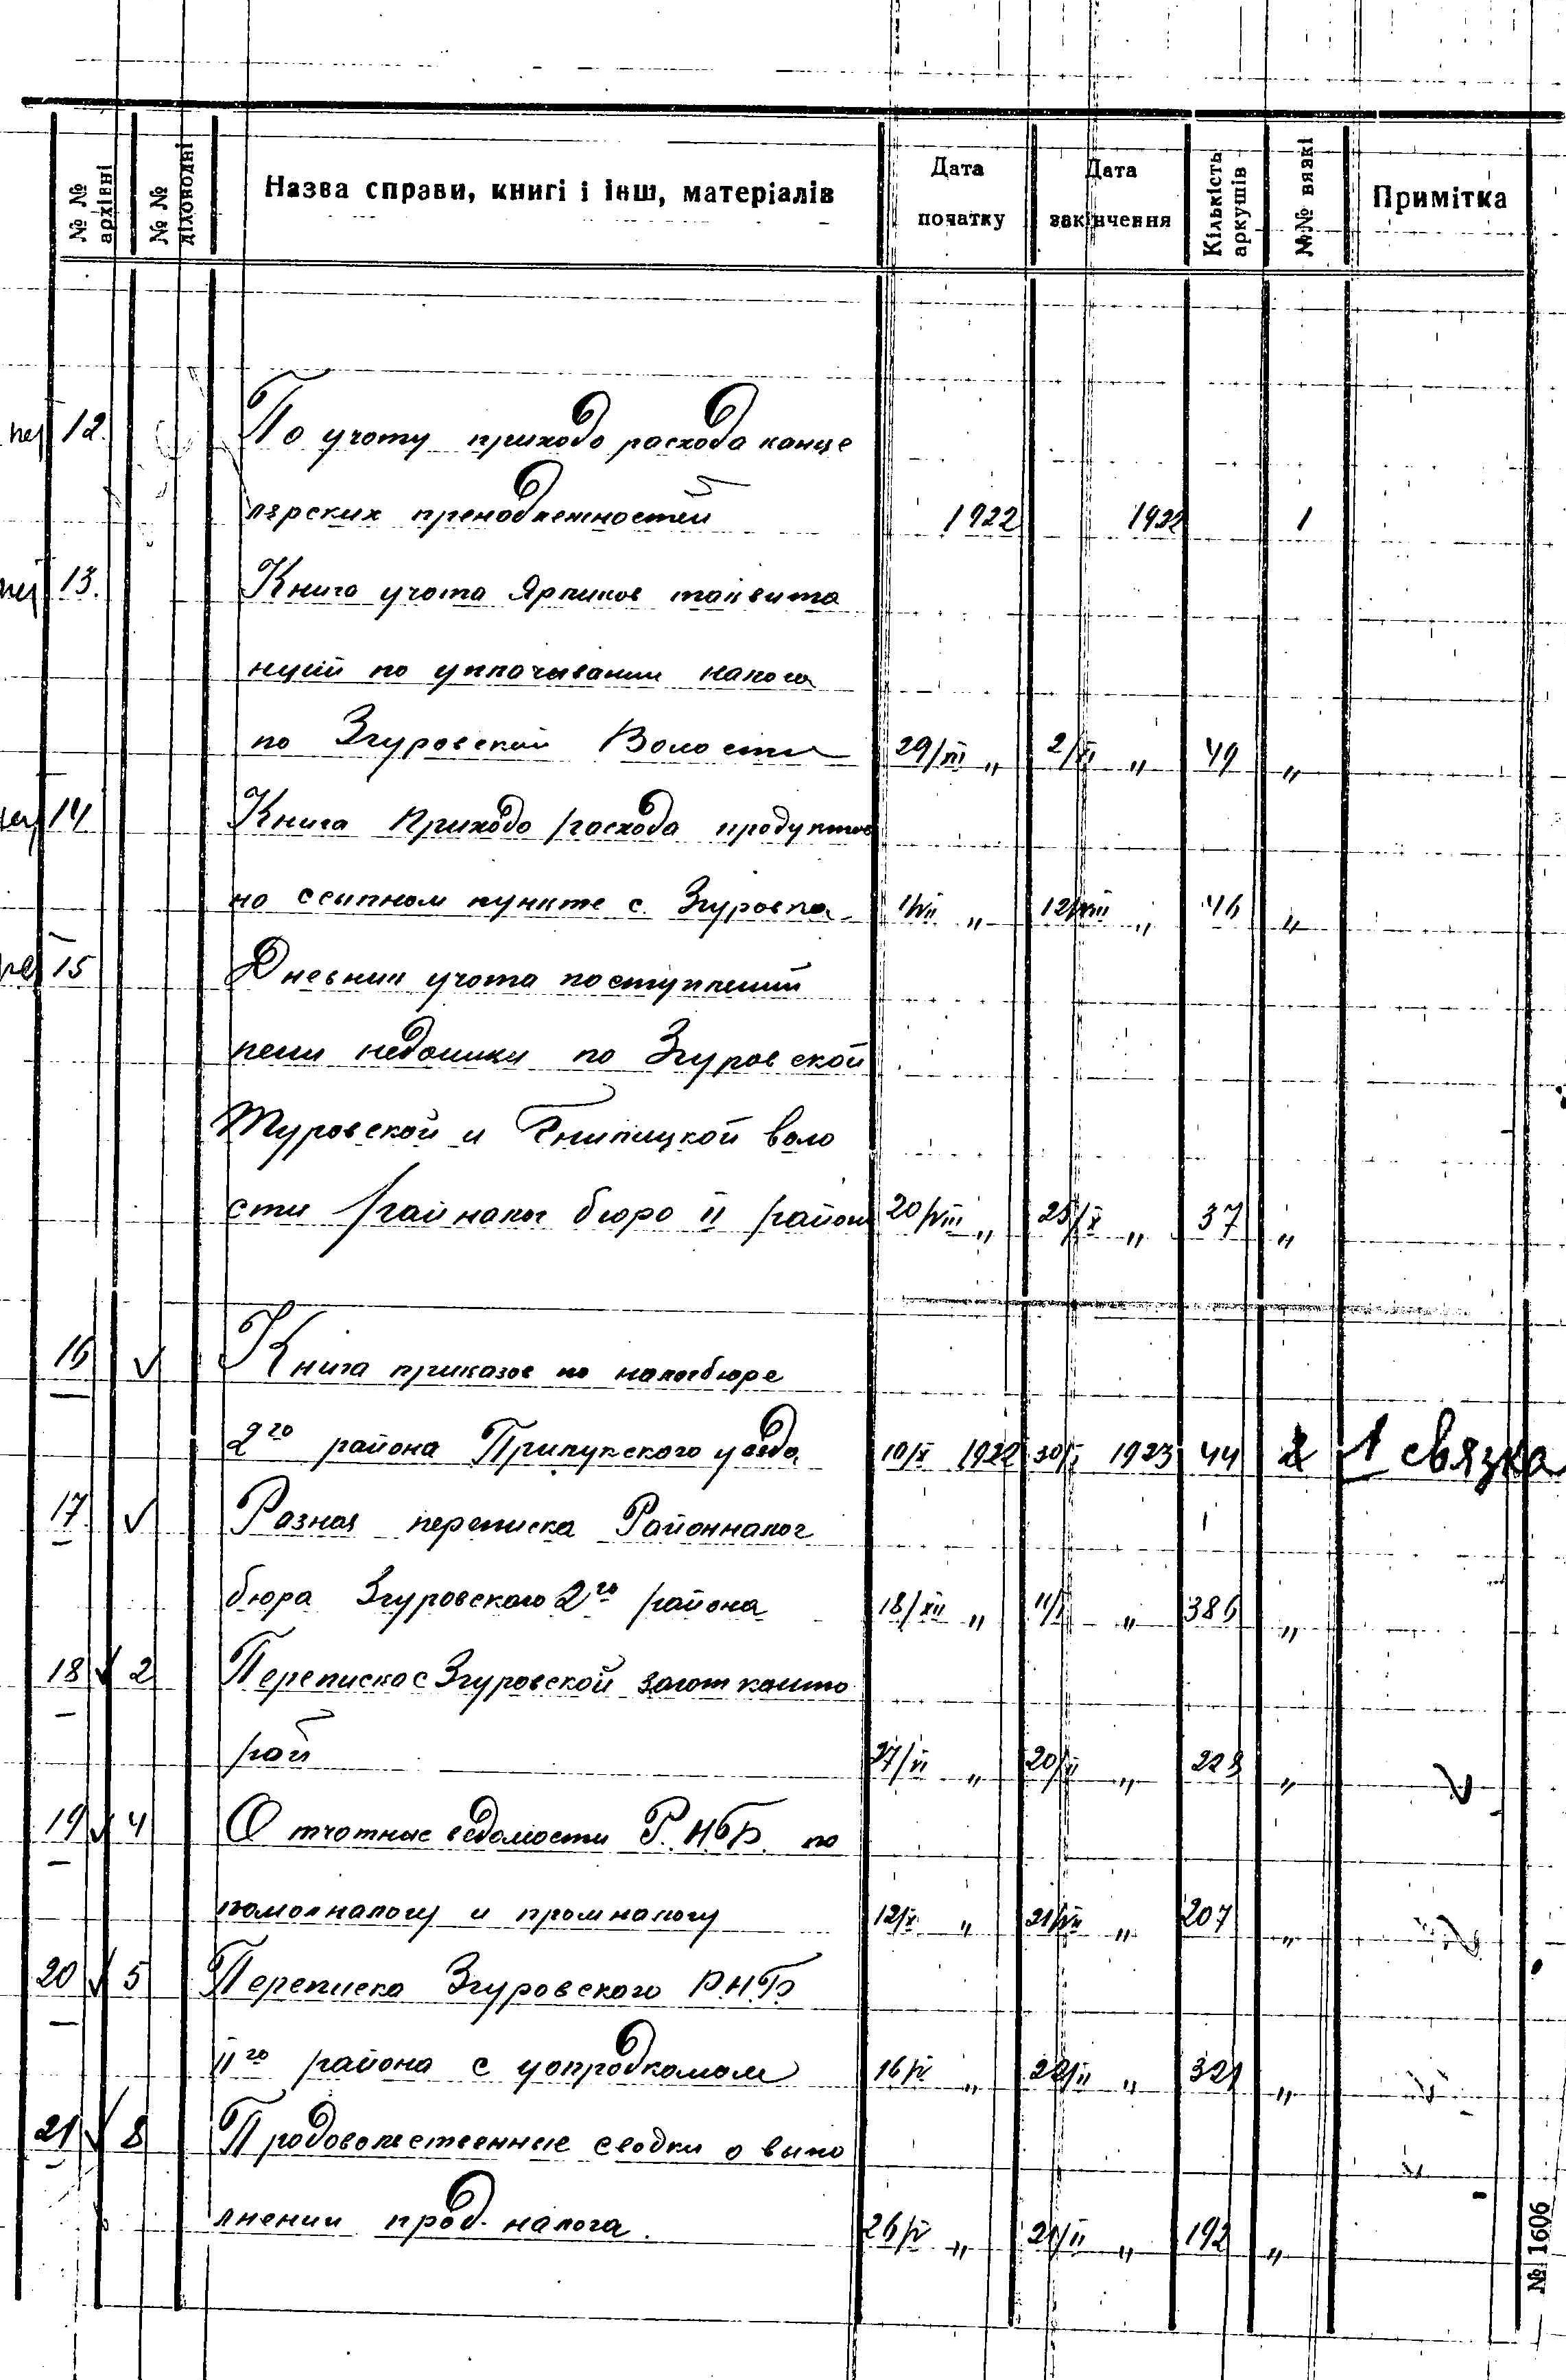 № № архівні
№ № діловодні
Назва справи, книгі і інш, матеріалів
Дата початку
Дата закінчення
Кількість аркушів
№№ вязкі
Примітка
12. По учоту приходо расхода канце
лярских 1922 1922 1
13. Книга учота Ярликов
нций по уплачивании налога
по Згуровской Волости 29/III „ 2/ „ 49 „
14 Книга Приходо расхода продуктов
на ссыпном пункте с. Згуровка 1/VII „ 12/VIII „ 46 „
15 Дневник учота поступлений
пени недоимки по Згуровской
Туровской и воло
сти Райналог бюро II район 20/VIII „ 25/X „ 37 „
16 ✓ Книга приказов по налогбюре
2го района Прилукского уезда 1922 1923 44 2 1 связка
17 ✓ Разная переписка Районналог
бюра Згуровского 2го района 18/XII „ „ 386 „
18 ✓ 2 Переписка с Згуровской загот канто
рой 27/ „ 20/ „ „ ✓
19 ✓ 4 Отчотные ведомости Р.Н.Б. по
помолналогу и промналогу 12/ „ „ 207 „
20 ✓ 5 Переписка Згуровского Р.Н.Б
IIго района с уопродкомом 16/ „ „ 321 „
21 ✓ 8 Продовольственные сводки о выпо
лнении прод. налога. 26/ „ „ 192 „
№ 1606